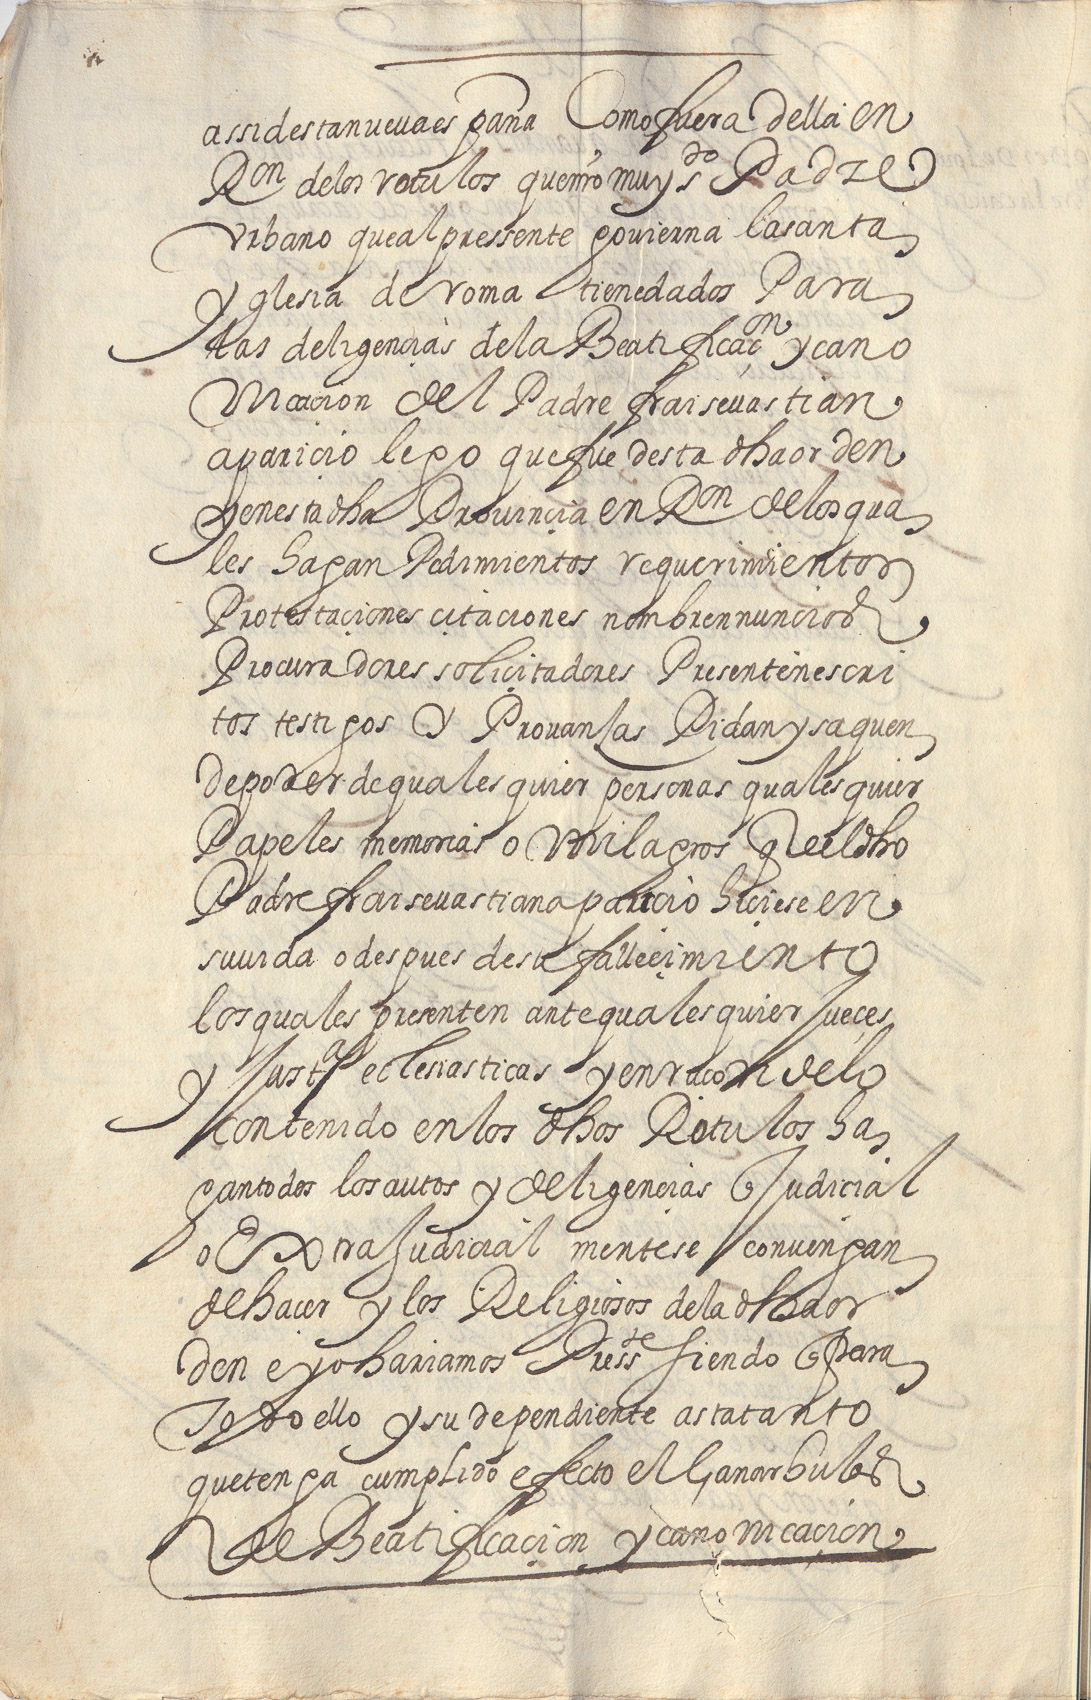 assi desta nueva españa Como fuera della en
Ron de los rotulos que nro muy sdo Padre
Vrbano que al pressente govierna la santa
yglesia de roma tiene dados Para
las deligencias de la Beatificaçon y cano
nicacion del Padre frai sevastian
aparicio lego que fue desta dha orden
y en esta dha Provincia en Ron de los qua
les hagan Pedimientos requerimientos
Protestaçiones çitaciones nombren nuncios
Procuradores soliçitadores Presenten escri
tos testigos y Provanzas Pidan y saquen
de poder de quales quier personas quales quier
Papeles memorias o milagros que el dho
Padre frai sevastian aparicio hiciese en
su vida o despues de su falleçimiento
los quales presenten ante quales quier Jueçes
y Justas eclesiasticas y en racon de lo
contenido en los dhos Rotulos ha
gan todos los autos y deligencias Judicial
o Extra Judicial mente se convengan
de hacer y los Religiosos de la dha or
den e yo hariamos Presste siendo Para
Todo ello y su dependiente asta tanto
que tenga cumplido efecto el Ganar bulas
de Beatificaçion y canonicaçion